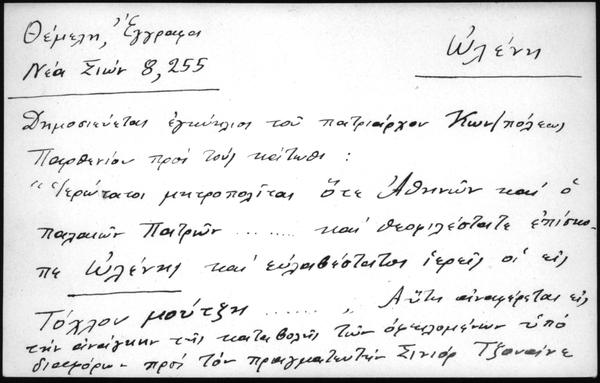 Θέμελη, Ἔγγραφα
Νέα Σιών 8, 255
Ὠλένη
Δημοσιεύεται ἐγκύκλιος τοῦ πατριάρχου Κων/πόλεως
Παρθενίου πρός τούς κάτωθι :
"Ἱερώτατοι μητροπολῖται ὅτε Ἀθηνῶν καί ὁ
παλαιῶν Πατρῶν ... ..... καί θεοφιλέστατε ἐπίσκο-
πε Ὠλένης καί εὐλαβέστατοι ἱερεῖς οἱ εἰς
μούτζη ...... , Αὕτη ἀναφέρεται εἰς
τήν ἀνάγκην τῆς καταβολῆς τῶν ὀφειλομένων ὑπό
διαφόρων πρός τόν πραγματευτήν Σινιόρ